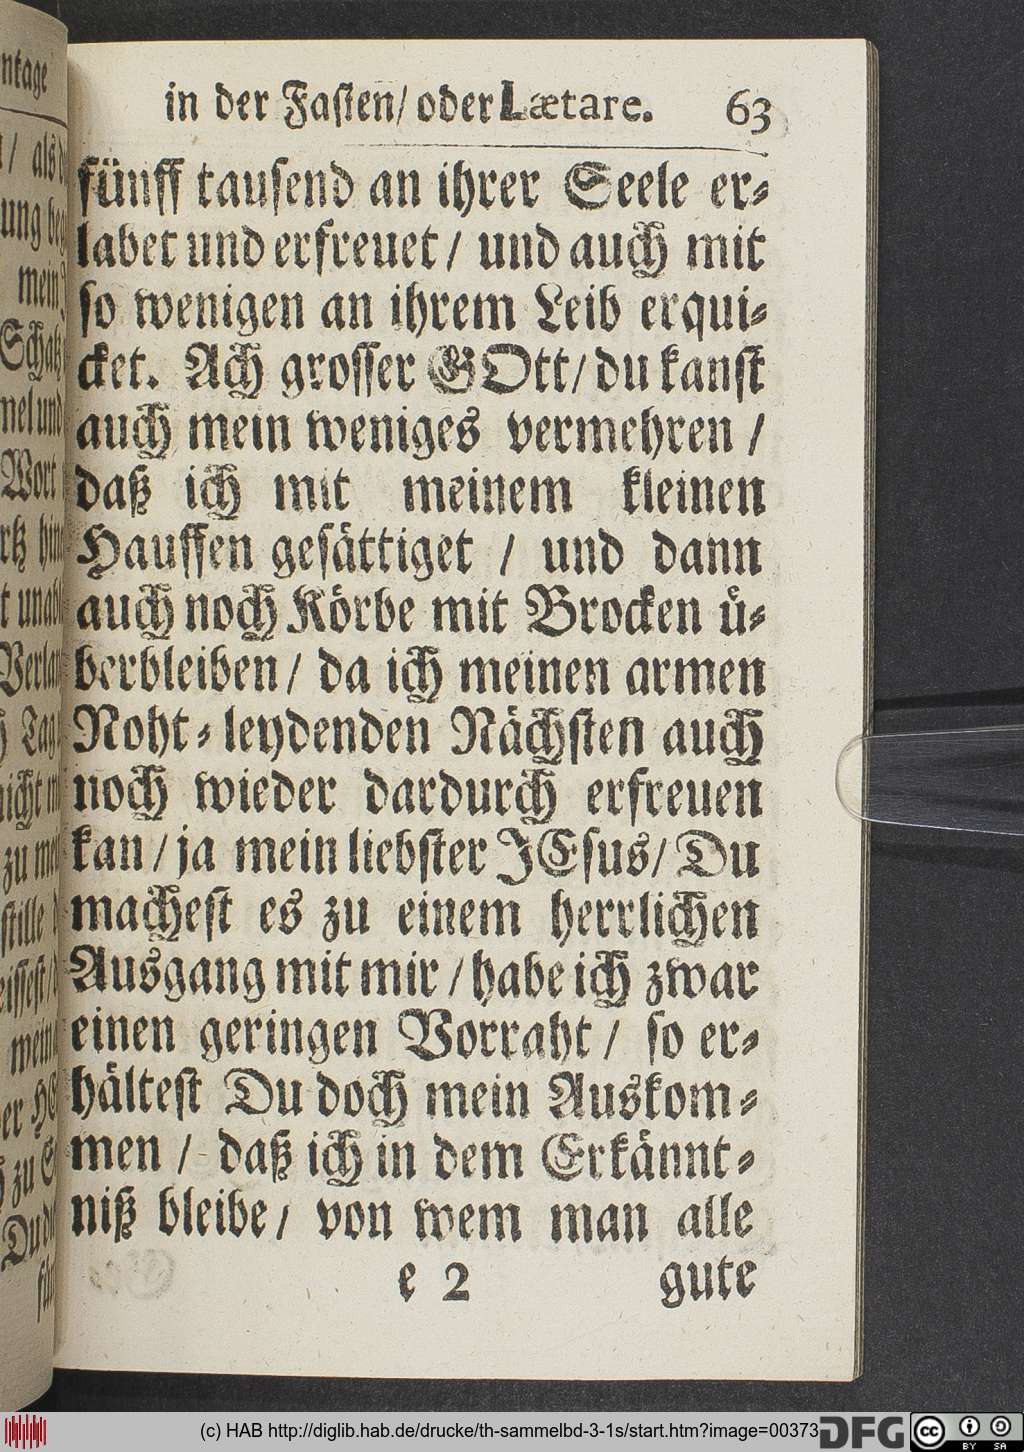 in der Fasten/ oder Lætare. 63
fünff tausend an ihrer Seele er-
labet und erfreuet / und auch mit
so wenigen an ihrem Leib erqui-
cket. Ach grosser GOtt/ du kanst
auch mein weniges vermehren /
daß ich mit meinem kleinen
Hauffen gesättiget / und dann
auch noch Körbe mit Brocken ü-
berbleiben / da ich meinen armen
Noht-leydenden Nächsten auch
noch wieder dardurch erfreuen
kan / ja mein liebster JEsus/ Du
machest es zu einem herrlichen
Ausgang mit mir / habe ich zwar
einen geringen Vorraht / so er-
hältest Du doch mein Auskom-
men / daß ich in dem Erkännt-
niß bleibe / von wem man alle
e 2 gute
(c) HAB http://diglib.hab.de/drucke/th-sammelbd-3-1s/start.htm?image=00373
DFG
cc
BY SA